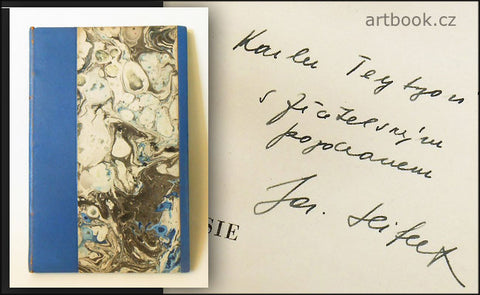 artbook.cz
Karlu
s přátelským
pozdravem
Jar. Seifert
SIE